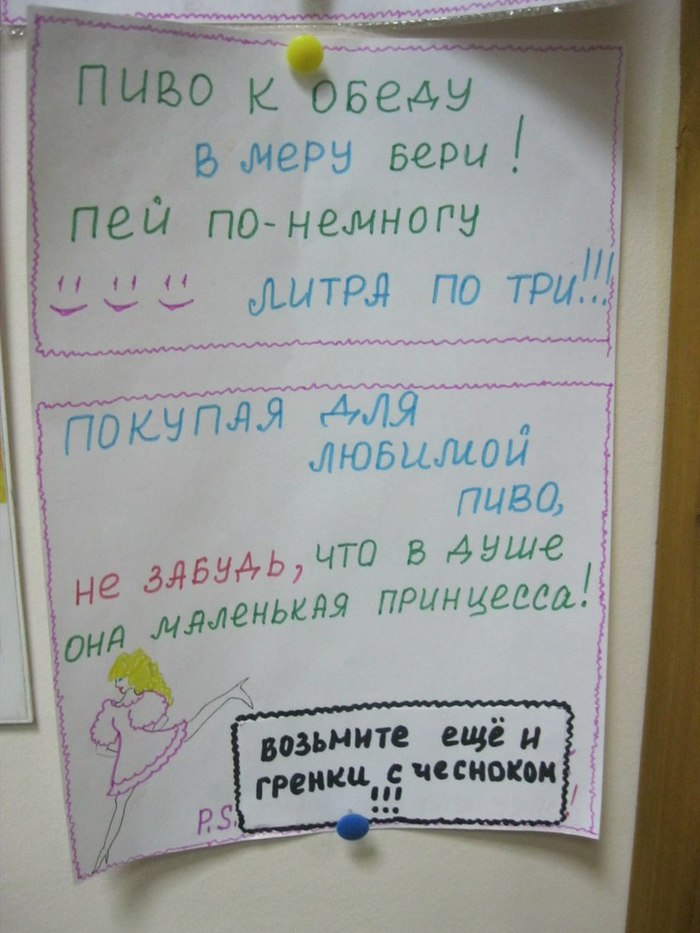 ПИВО К ОБЕДУ
В МЕРУ БЕРИ!
ПЕЙ ПО-НЕМНОГУ
ЛИТРА ПО ТРИ!!!
ПОКУПАЯ ДЛЯ
ЛЮБИМОЙ
ПИВО,
НЕ ЗАБУДЬ, ЧТО В ДУШЕ
ОНА МАЛЕНЬКАЯ ПРИНЦЕССА!
P.S.
ВОЗЬМИТЕ ЕЩЁ И
ГРЕНКИ С ЧЕСНОКОМ
!!!